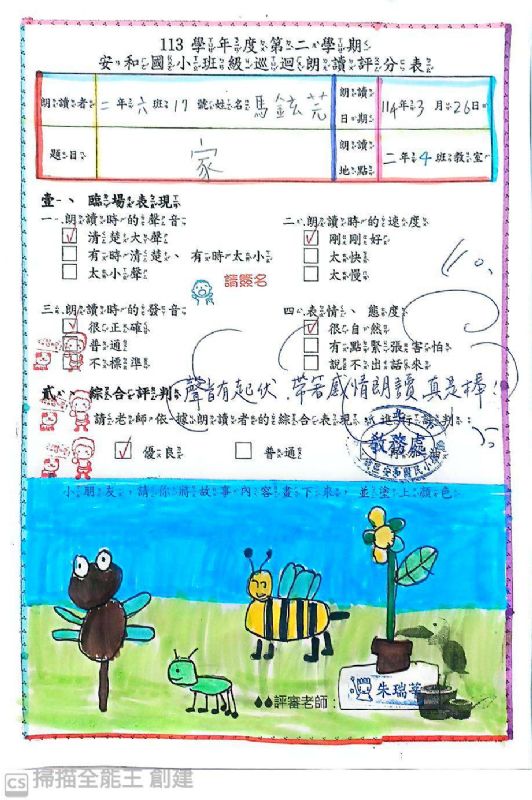 113 學年度第二學期
安和國小班級巡迴朗讀評分表
朗讀者 二年六班17號姓名馬鉉芫 朗讀日期 114年3月26日
題目 家 朗讀地點 二年4班教室
壹、 臨場表現
一、朗讀時的聲音
清楚大聲
有時清楚、有時太小
太小聲
二、朗讀時的速度
剛剛好
太快
太慢
請簽名
三、朗讀時的發音
很正確
普通
不標準
四、表情、態度
很自然
有點緊張害怕
說不出話來
聲音有起伏、帶著感情朗讀，真是棒！
貳、 綜合評判
請老師依據朗讀者的綜合表現，進行評判：
優良 普通
教務處
小朋友，請你將故事內容畫下來，並塗上顏色
評審老師：
朱瑞苹
CS 掃描全能王 創建